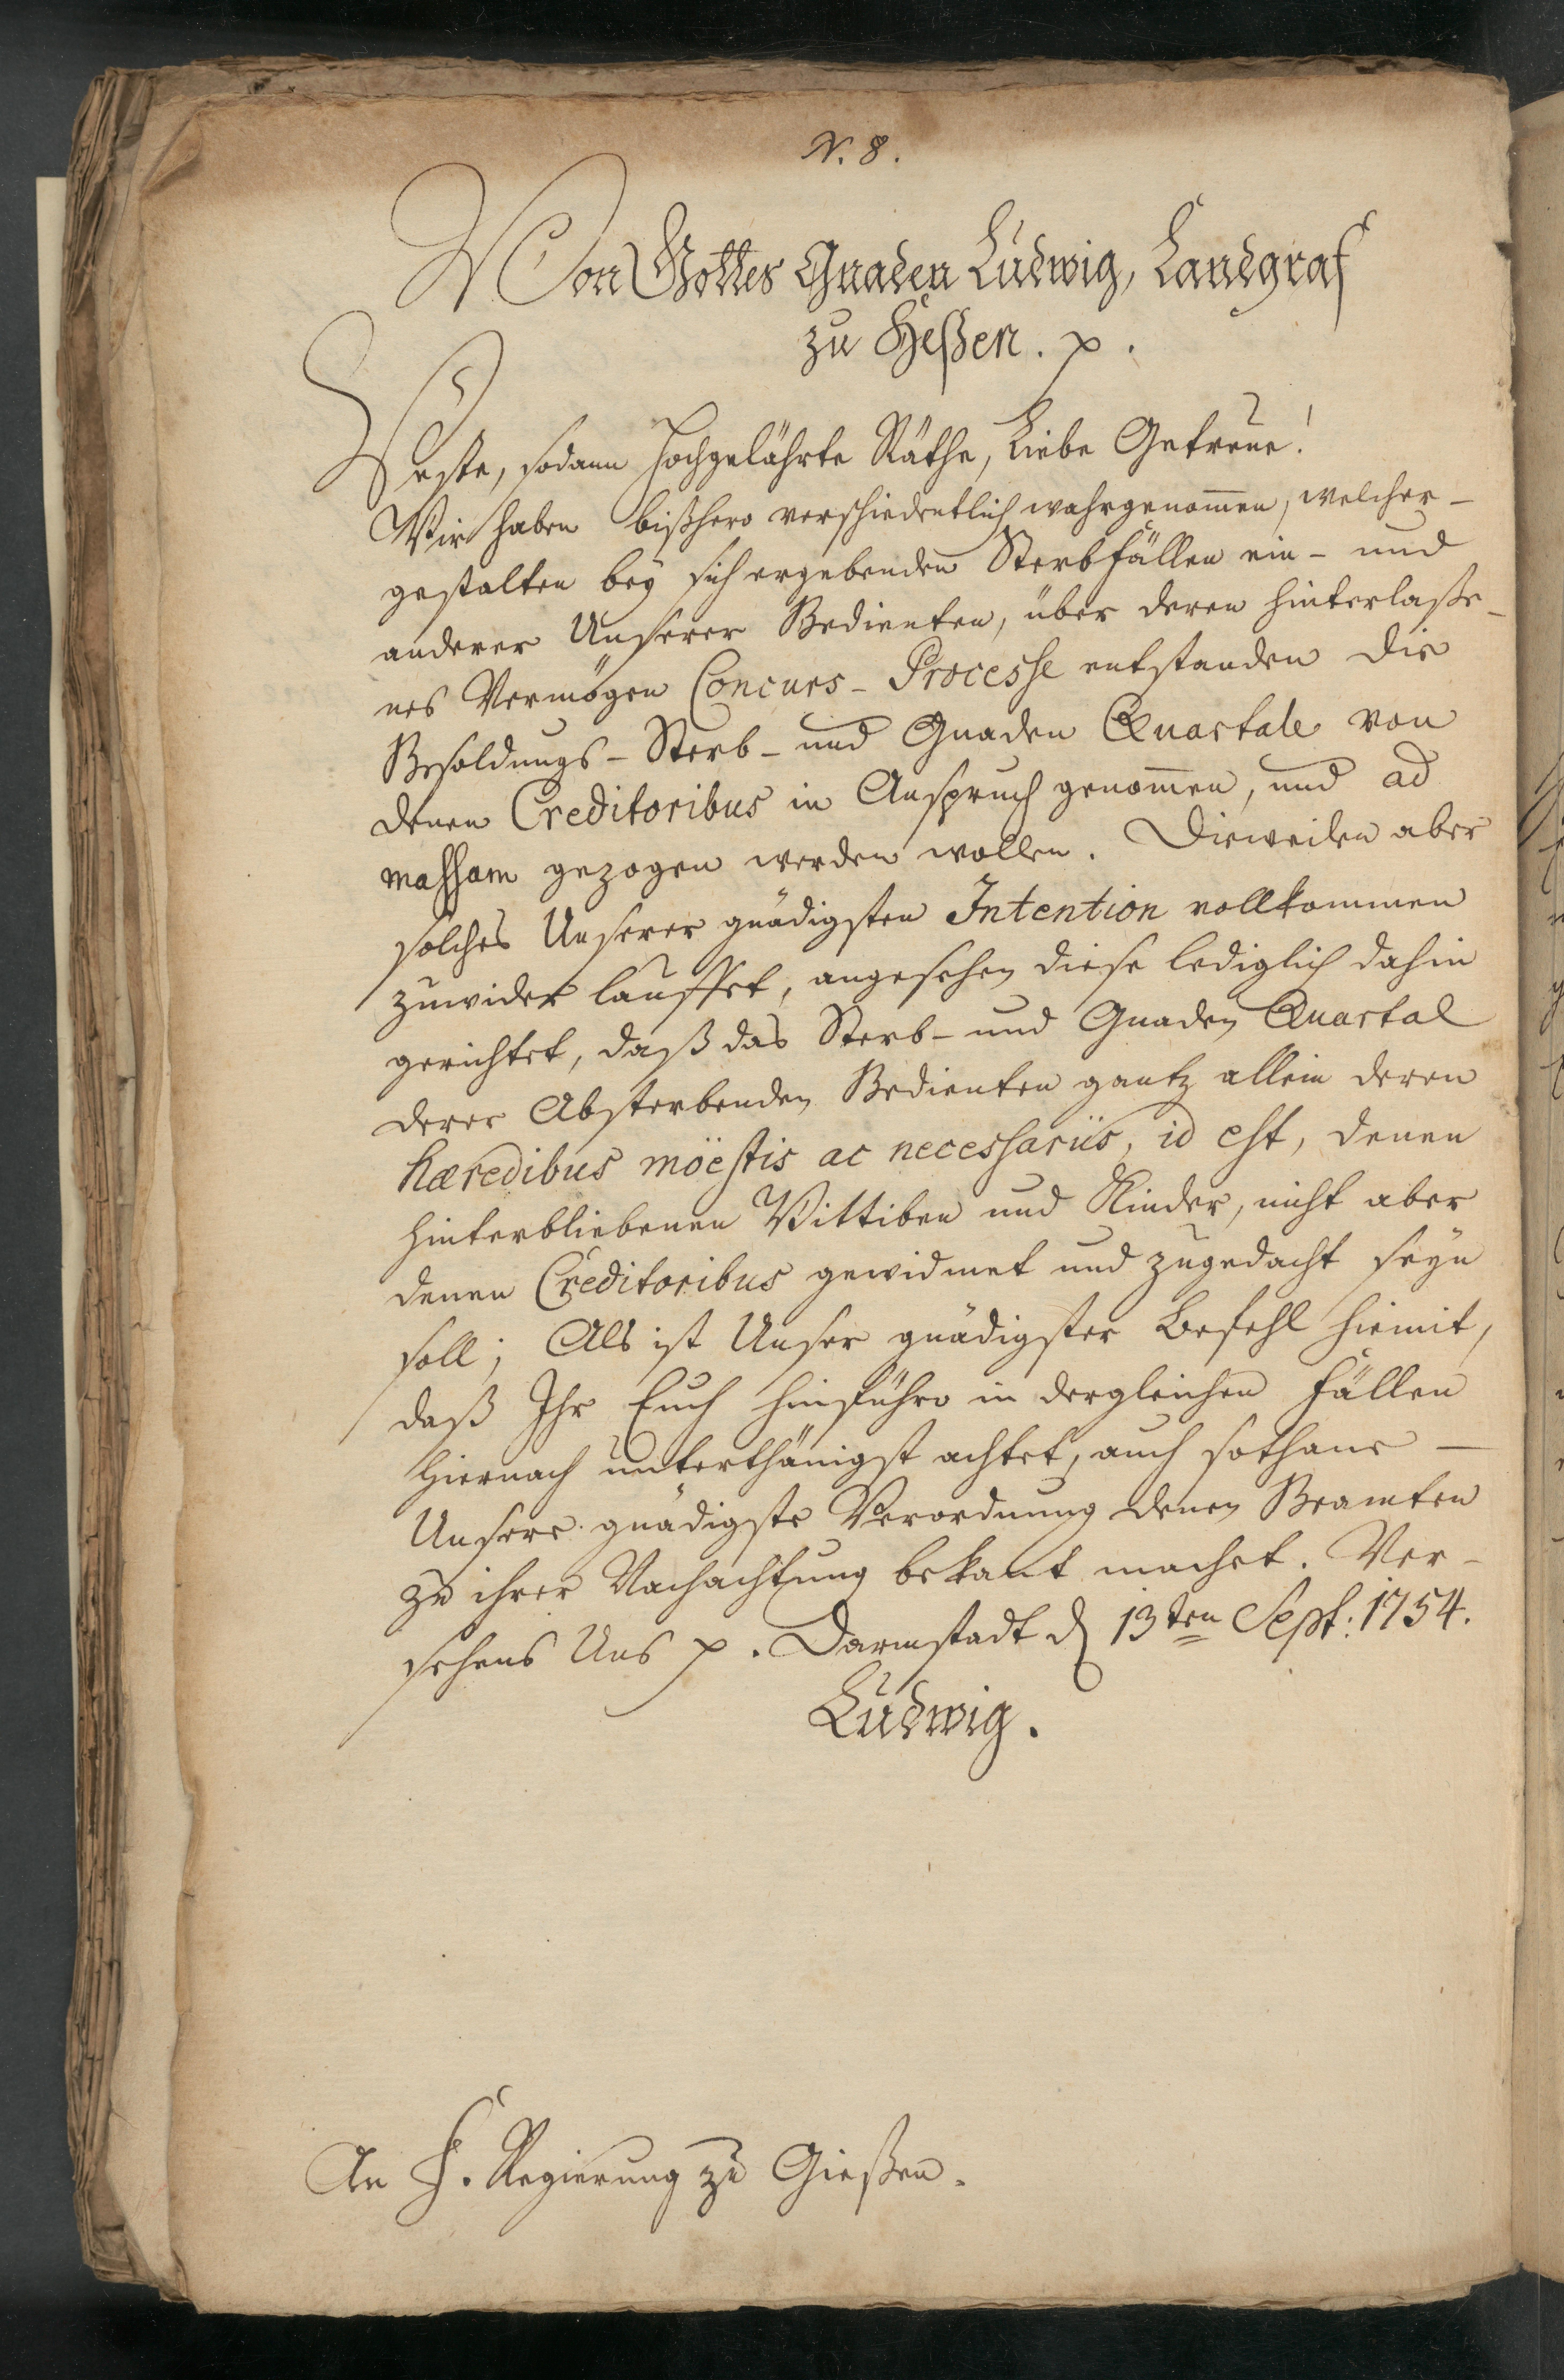 N. 8.
Von Gottes Gnaden Ludwig, Landgraf
zu Heßen. p.
Veste, sodann Hochgelährte Räthe, Liebe Getreue!
Wir haben bißhero verschiedentlich wahrgenom̅en, welcher-
gestalten bey sich ergebenden Sterbfällen ein- und
anderer Unserer Bedienten, über deren hinterlaße-
nes Vermögen Concurs-Processe entstanden die
Besoldungs- Sterb- und Gnaden Quartale von
denen Creditoribus in Anspruch genom̅en, und ad
massam gezogen werden wollen. Dieweilen aber
solches Unserer gnädigsten Intention vollkommen
zuwider lauffet, angesehen diese lediglich dahin
gerichtet, daß das Sterb- und Gnaden Quartal
derer Absterbenden Bedienten gantz allein deren
hæredibus möestis ac necessariis, id est, denen
hinterbliebenen Wittiben und Kinder, nicht aber
denen Creditoribus gewidmet und zugedacht seyn
soll; Als ist Unser gnädigster Befehl hiemit,
daß Ihr Euch hinführo in dergleichen Fällen
hiernach unterthänigst achtet, auch sothane
Unsere gnädigste Verordnung denen Beamten
zu ihrer Nachachtung bekant machet. Ver-
sehens Uns p. Darmstadt d 13ten Sept: 1754.
Ludwig.
An F. Regierung zu Gießen.